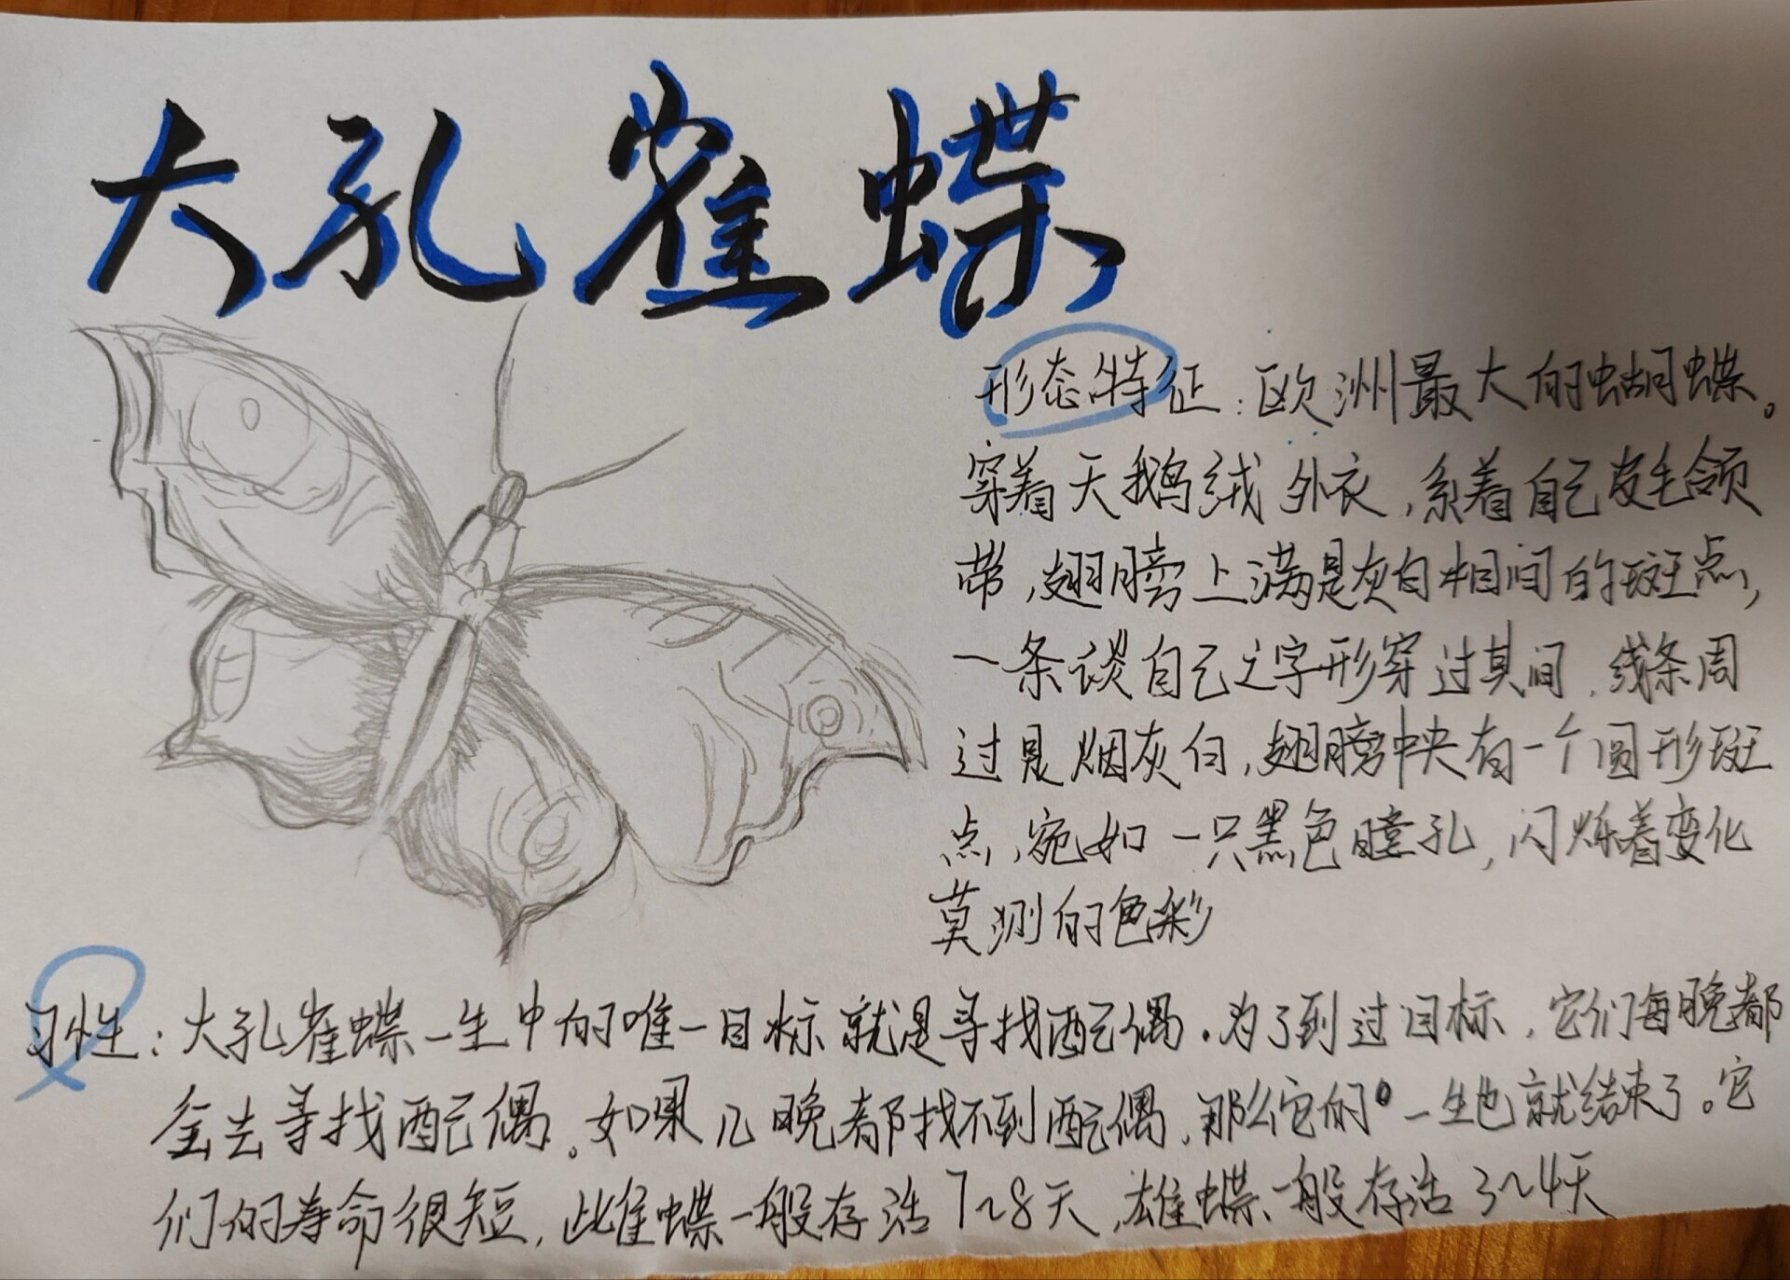 大孔雀蝶
形态特征：欧洲最大的蝴蝶。
穿着天鹅绒外衣，系着自己皮毛领
带，翅膀上满是灰白相间的斑点，
一条谈自己之字形穿过其间，线条周
过是烟灰白，翅膀中央有一个圆形斑
点，宛如一只黑色瞳孔，闪烁着变化
莫测的色彩
习性：大孔雀蝶一生中的唯一目标就是寻找配偶。为了到过目标，它们每晚都
会去寻找配偶。如果几晚都找不到配偶，那么它的一生也就结束了。它
们的寿命很短，雌蝶一般存活7~8天，雄蝶一般存活3~4天